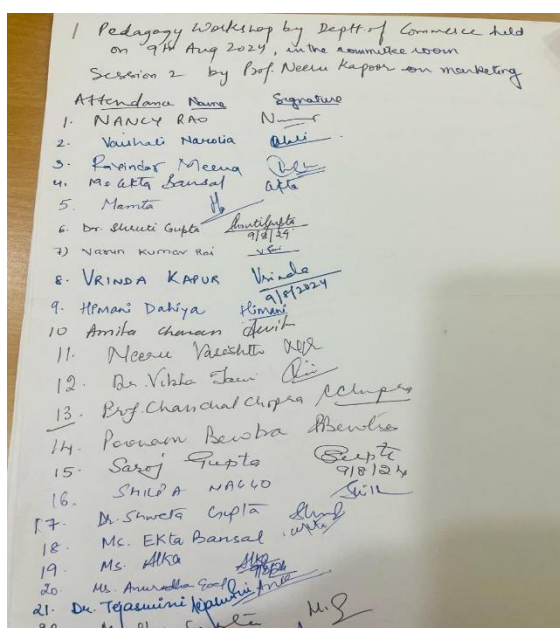 1 Pedagogy Workshop by Deptt of Commerce held
on 9th Aug 2024, in the committee room
Session 2 by Prof. Neeru Kapoor on marketing
Attendance Name Signature
1. NANCY RAO
2. Vaishali Narolia
3. Ravinder Meena
4. Ms Ekta Bansal Ekta
5. Mamta
6. Dr. Shruti Gupta ShrutiGupta
9/8/24
7) Varun Kumar Rai
8. VRINDA KAPUR Vrinda
9/8/2024
9. Himani Dahiya Himani
10 Amita Charan
11. Meenu
12. Dr. Vibha Jain
13. Prof. Chanchal Chopra CChopra
14. Poonam Beotra PBeotra
15. Saroj Gupta Gupta
9/8/24
16. SHILPA NAGGO
17. Dr. Shweta Gupta
18. Ms. Ekta Bansal Ekta
19. Ms. Alka Alka
9/8/24
20. Ms. Anuradha Goel
21. Dr. Tejaswini
Gupta